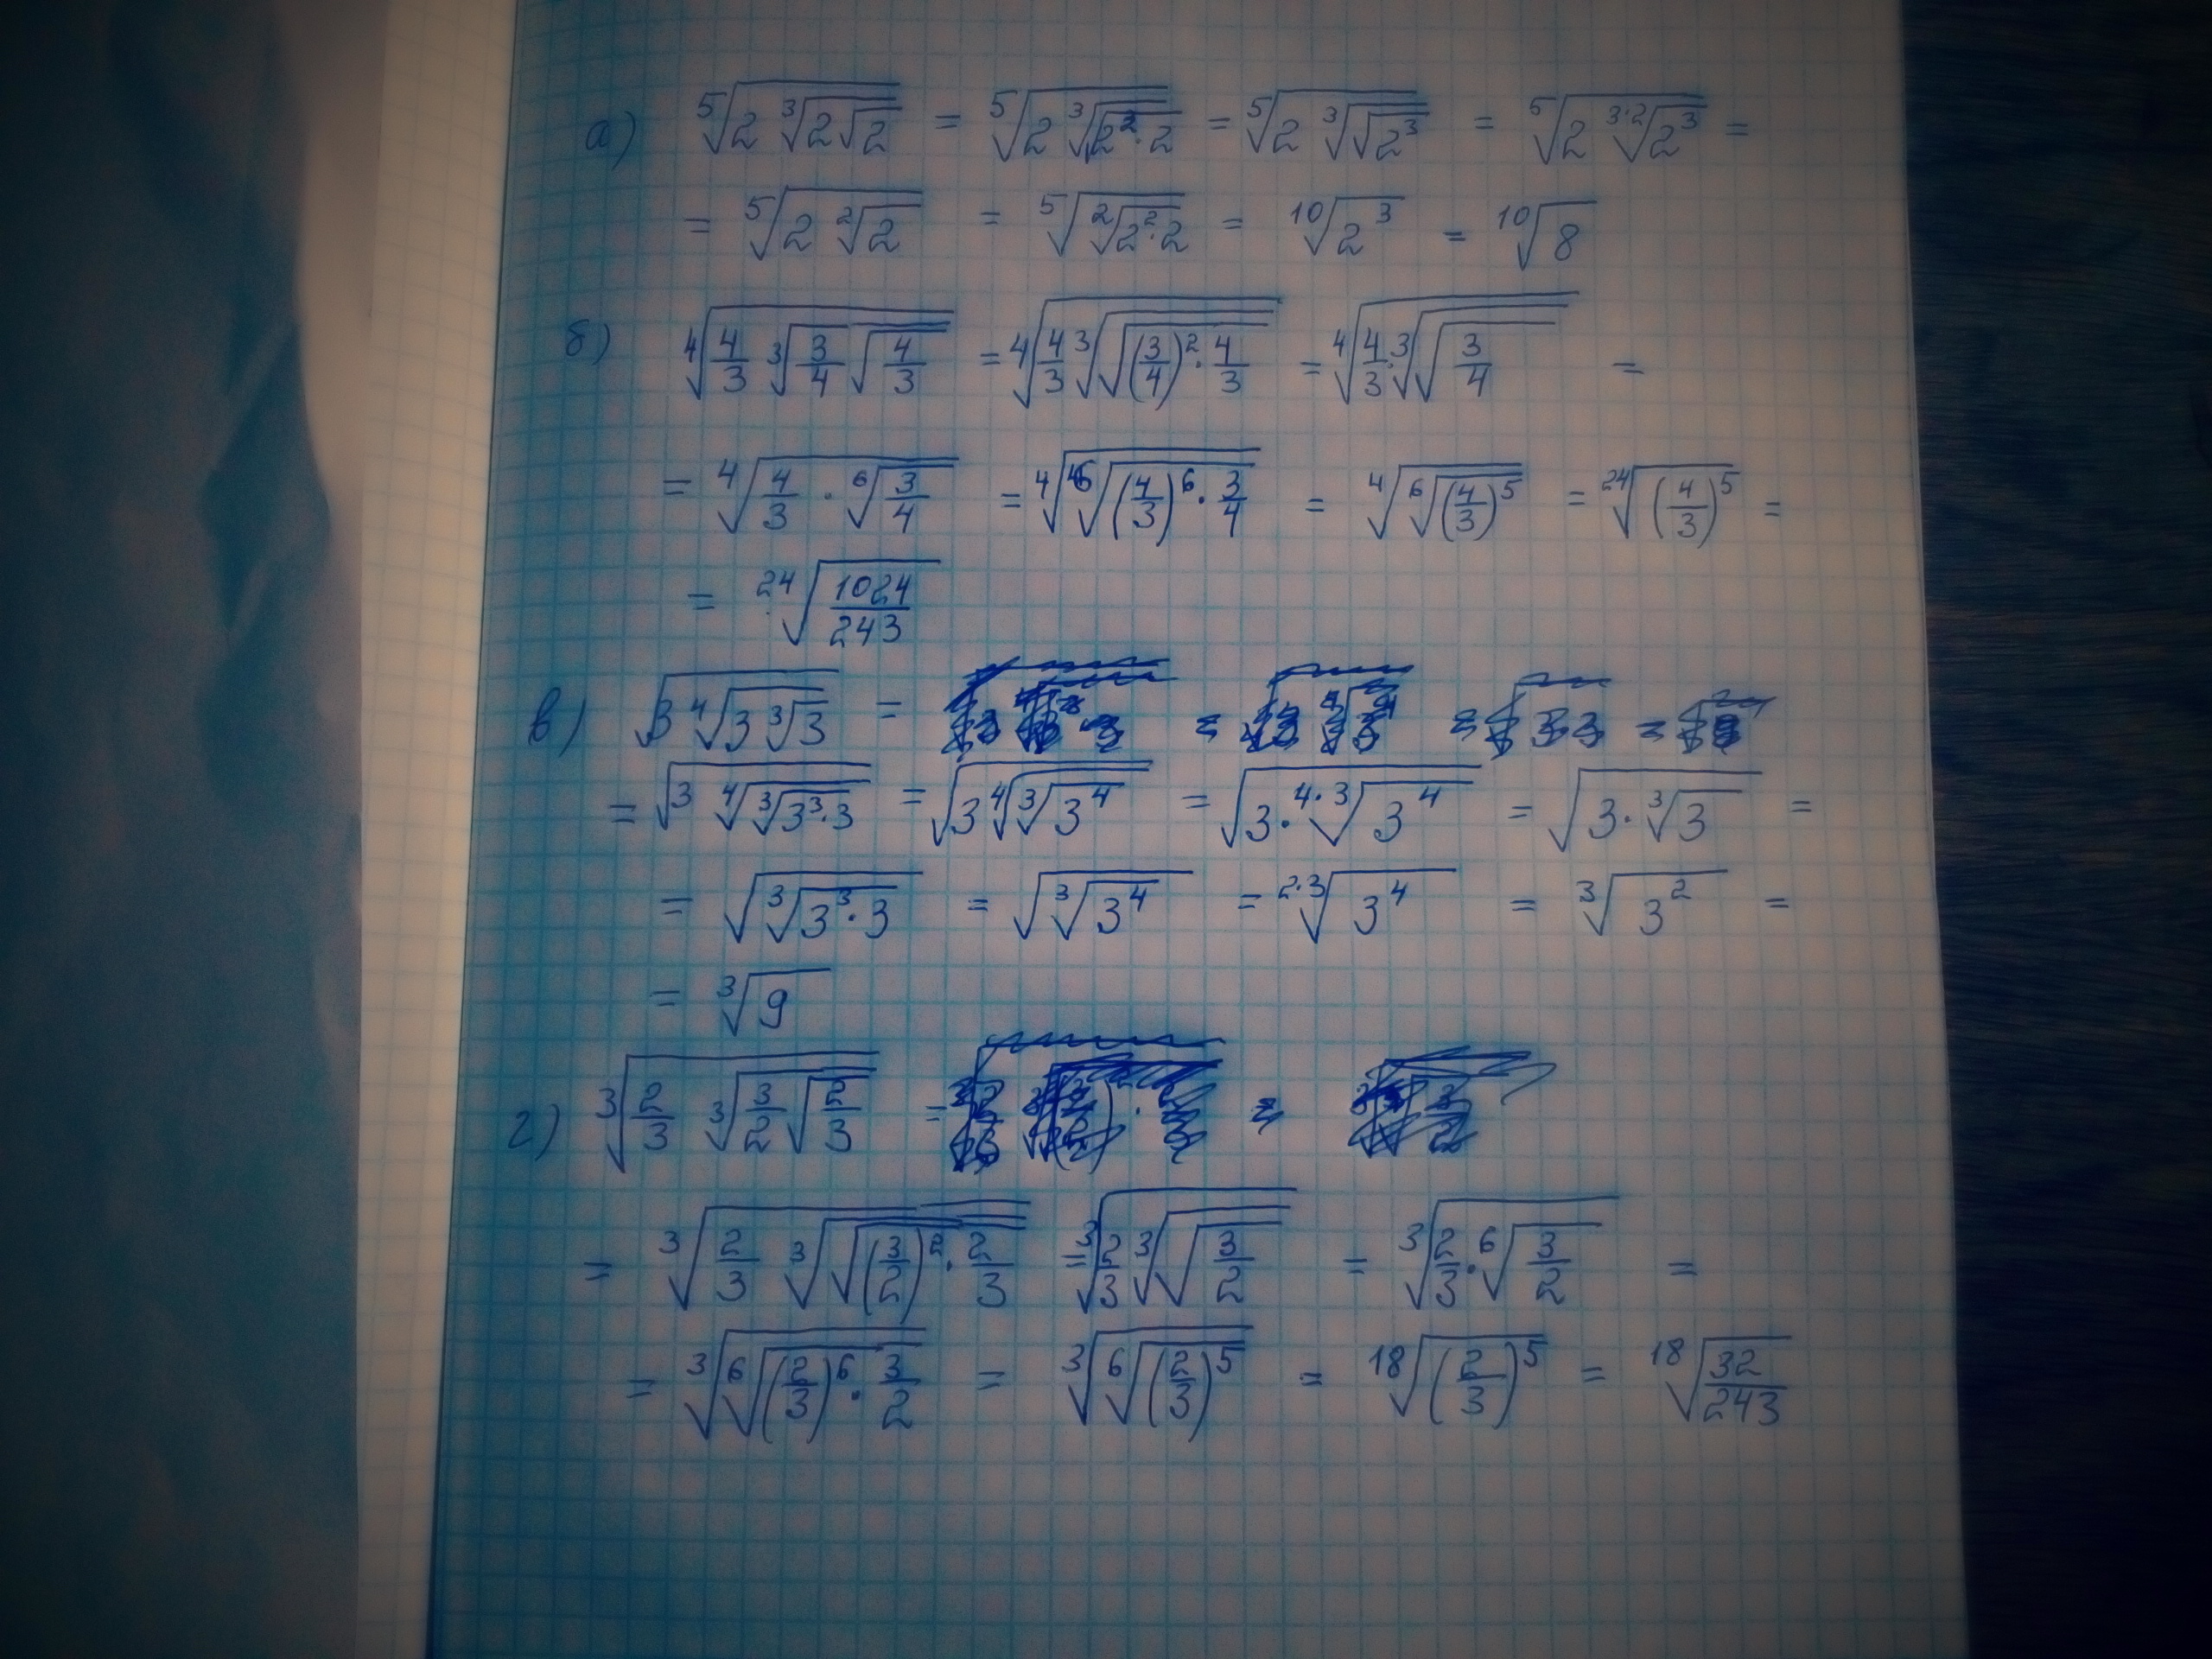 а) ⁵√(2 ³√(2√2)) = ⁵√(2 ³√(√(2²·2))) = ⁵√(2 ³√(√(2³))) = ⁵√(2 ³·²√(2³)) =
= ⁵√(2 ²√2) = ⁵√(²√(2²·2)) = ¹⁰√(2³) = ¹⁰√8
б) ⁴√(4/3 ³√(3/4 √(4/3))) = ⁴√(4/3 ³√(√((3/4)²·4/3))) = ⁴√(4/3·³√(√(3/4))) =
= ⁴√(4/3 · ⁶√(3/4)) = ⁴√(⁶√((4/3)⁶·3/4)) = ⁴√(⁶√((4/3)⁵)) = ²⁴√((4/3)⁵) =
= ²⁴√(1024/243)
в) √(3 ⁴√(3 ³√3)) =
= √(3 ⁴√(³√(3³·3))) = √(3 ⁴√(³√(3⁴))) = √(3·⁴·³√(3⁴)) = √(3·³√3) =
= √(³√(3³·3)) = √(³√(3⁴)) = ²·³√(3⁴) = ³√(3²) =
= ³√9
г) ³√(2/3 ³√(3/2 √(2/3))) =
= ³√(2/3 ³√(√((3/2)²·2/3))) = ³√(2/3 ³√(√(3/2))) = ³√(2/3·⁶√(3/2)) =
= ³√(⁶√((2/3)⁶·3/2)) = ³√(⁶√((2/3)⁵)) = ¹⁸√((2/3)⁵) = ¹⁸√(32/243)